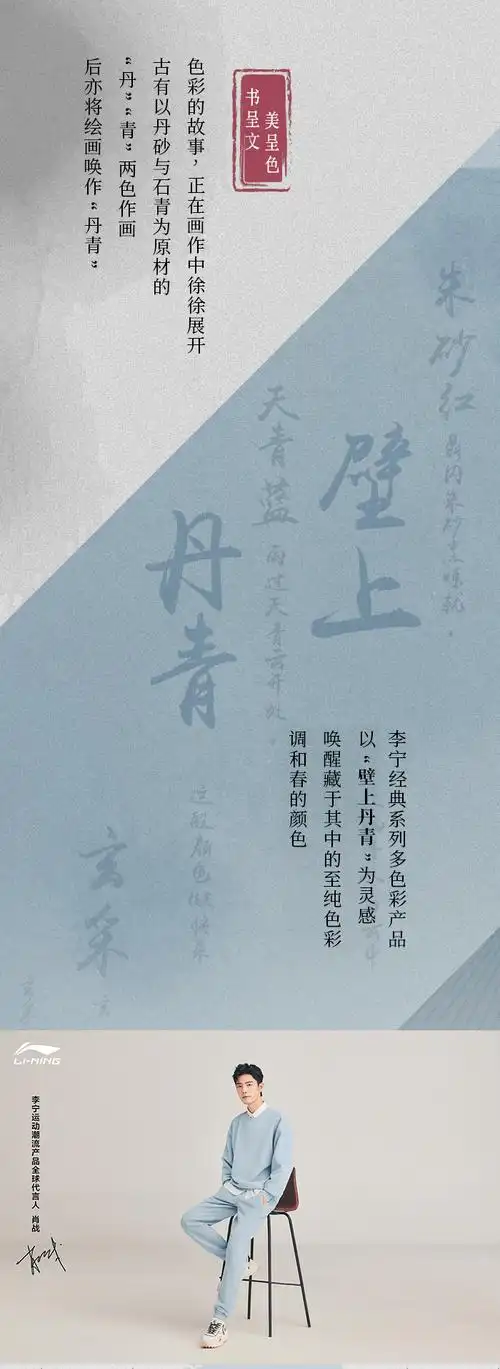 美呈色
书呈文
色彩的故事，正在画作中徐徐展开
古有以丹砂与石青为原材的
“丹”“青”两色作画
后亦将绘画唤作“丹青”
朱砂红
壁上
天青蓝
雨过天青云开处。
丹青
李宁经典系列多色彩产品
以“壁上丹青”为灵感
唤醒藏于其中的至纯色彩
调和春的颜色
这般颜色做将来
玄采
玄
LI-NING
李宁运动潮流产品全球代言人 肖战